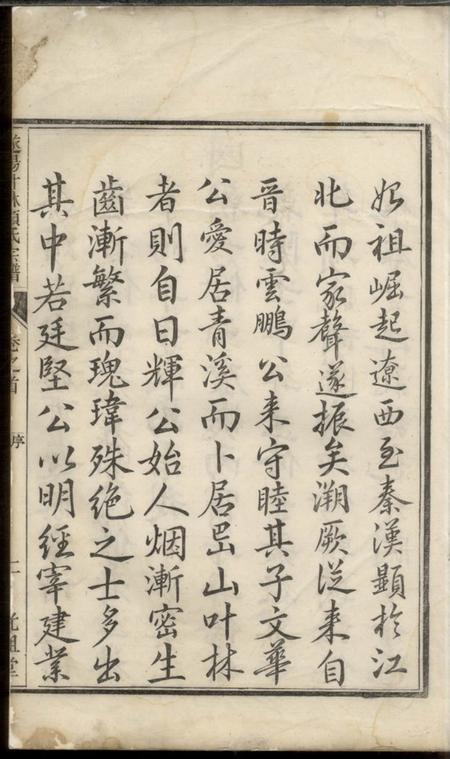 始祖崛起遼西至秦漢顯於江
北而家聲遂振矣溯厥從来自
晉時雲鵬公来守睦其子文華
公愛居青溪而卜居岊山叶林
者則自日輝公始人烟漸密生
齒漸繁而瑰瑋殊絶之士多出
其中若廷堅公以明經宰建業
遂陽叶林項氏宗譜 卷之首 序 二